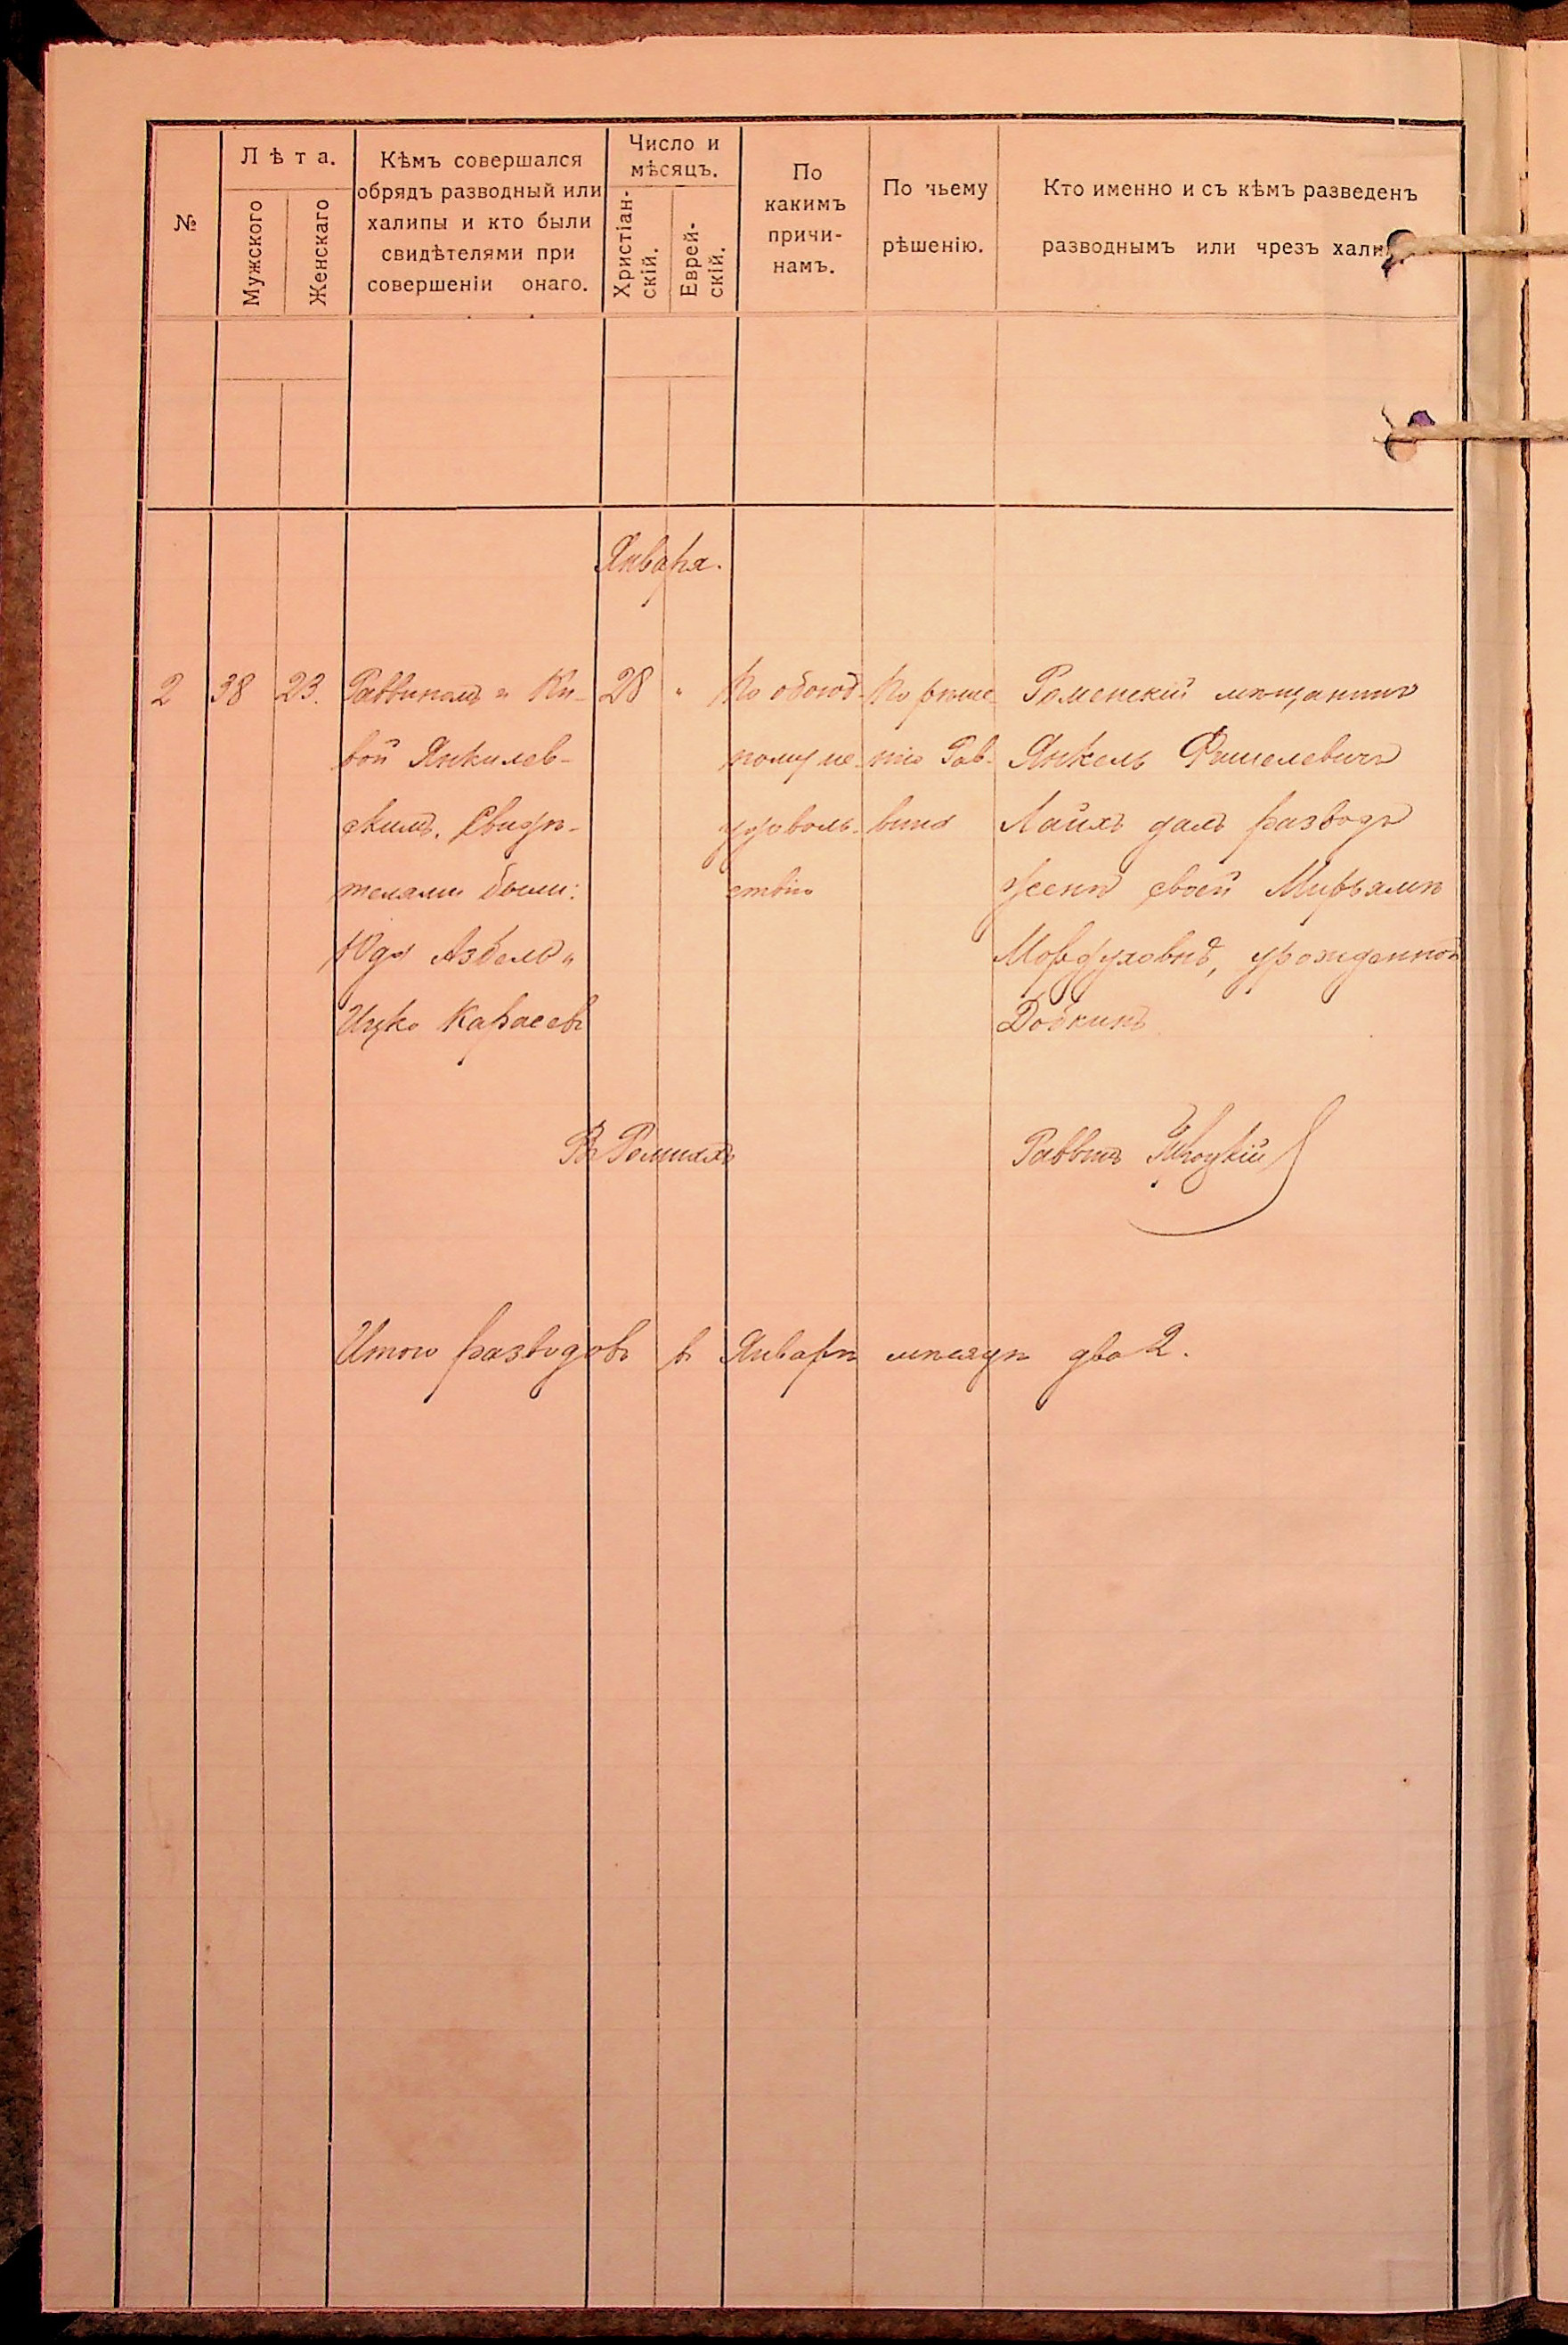 №
Лѣта.
Мужского
Женскаго
Кѣмъ совершался
обрядъ разводный или
халипы и кто были
свидѣтелями при
совершеніи онаго.
Число и
мѣсяцъ.
Христіан-
скій.
Еврей-
скій.
По
какимъ
причи-
намъ.
По чьему
рѣшенію.
Кто именно и съ кѣмъ разведенъ
разводнымъ или чрезъ
Января.
2
38
23.
Раввиномъ
вой Янкилев-
скимъ. Свидѣ-
телями были:
Юда
Ицко Карасевъ
28
"
По обоюд-
ному не-
удоволь-
ствію
По рѣше-
нію Рав-
вина
Роменскій мѣщанинъ
Янкель Фишелевичъ
Лайхъ далъ разводъ
женѣ своей Мирьямѣ
Мордуховнѣ, урожденной
Добкинъ
Въ Ромнахъ
Раввинъ
Итого разводовъ въ Январѣ мѣсяцѣ два 2.